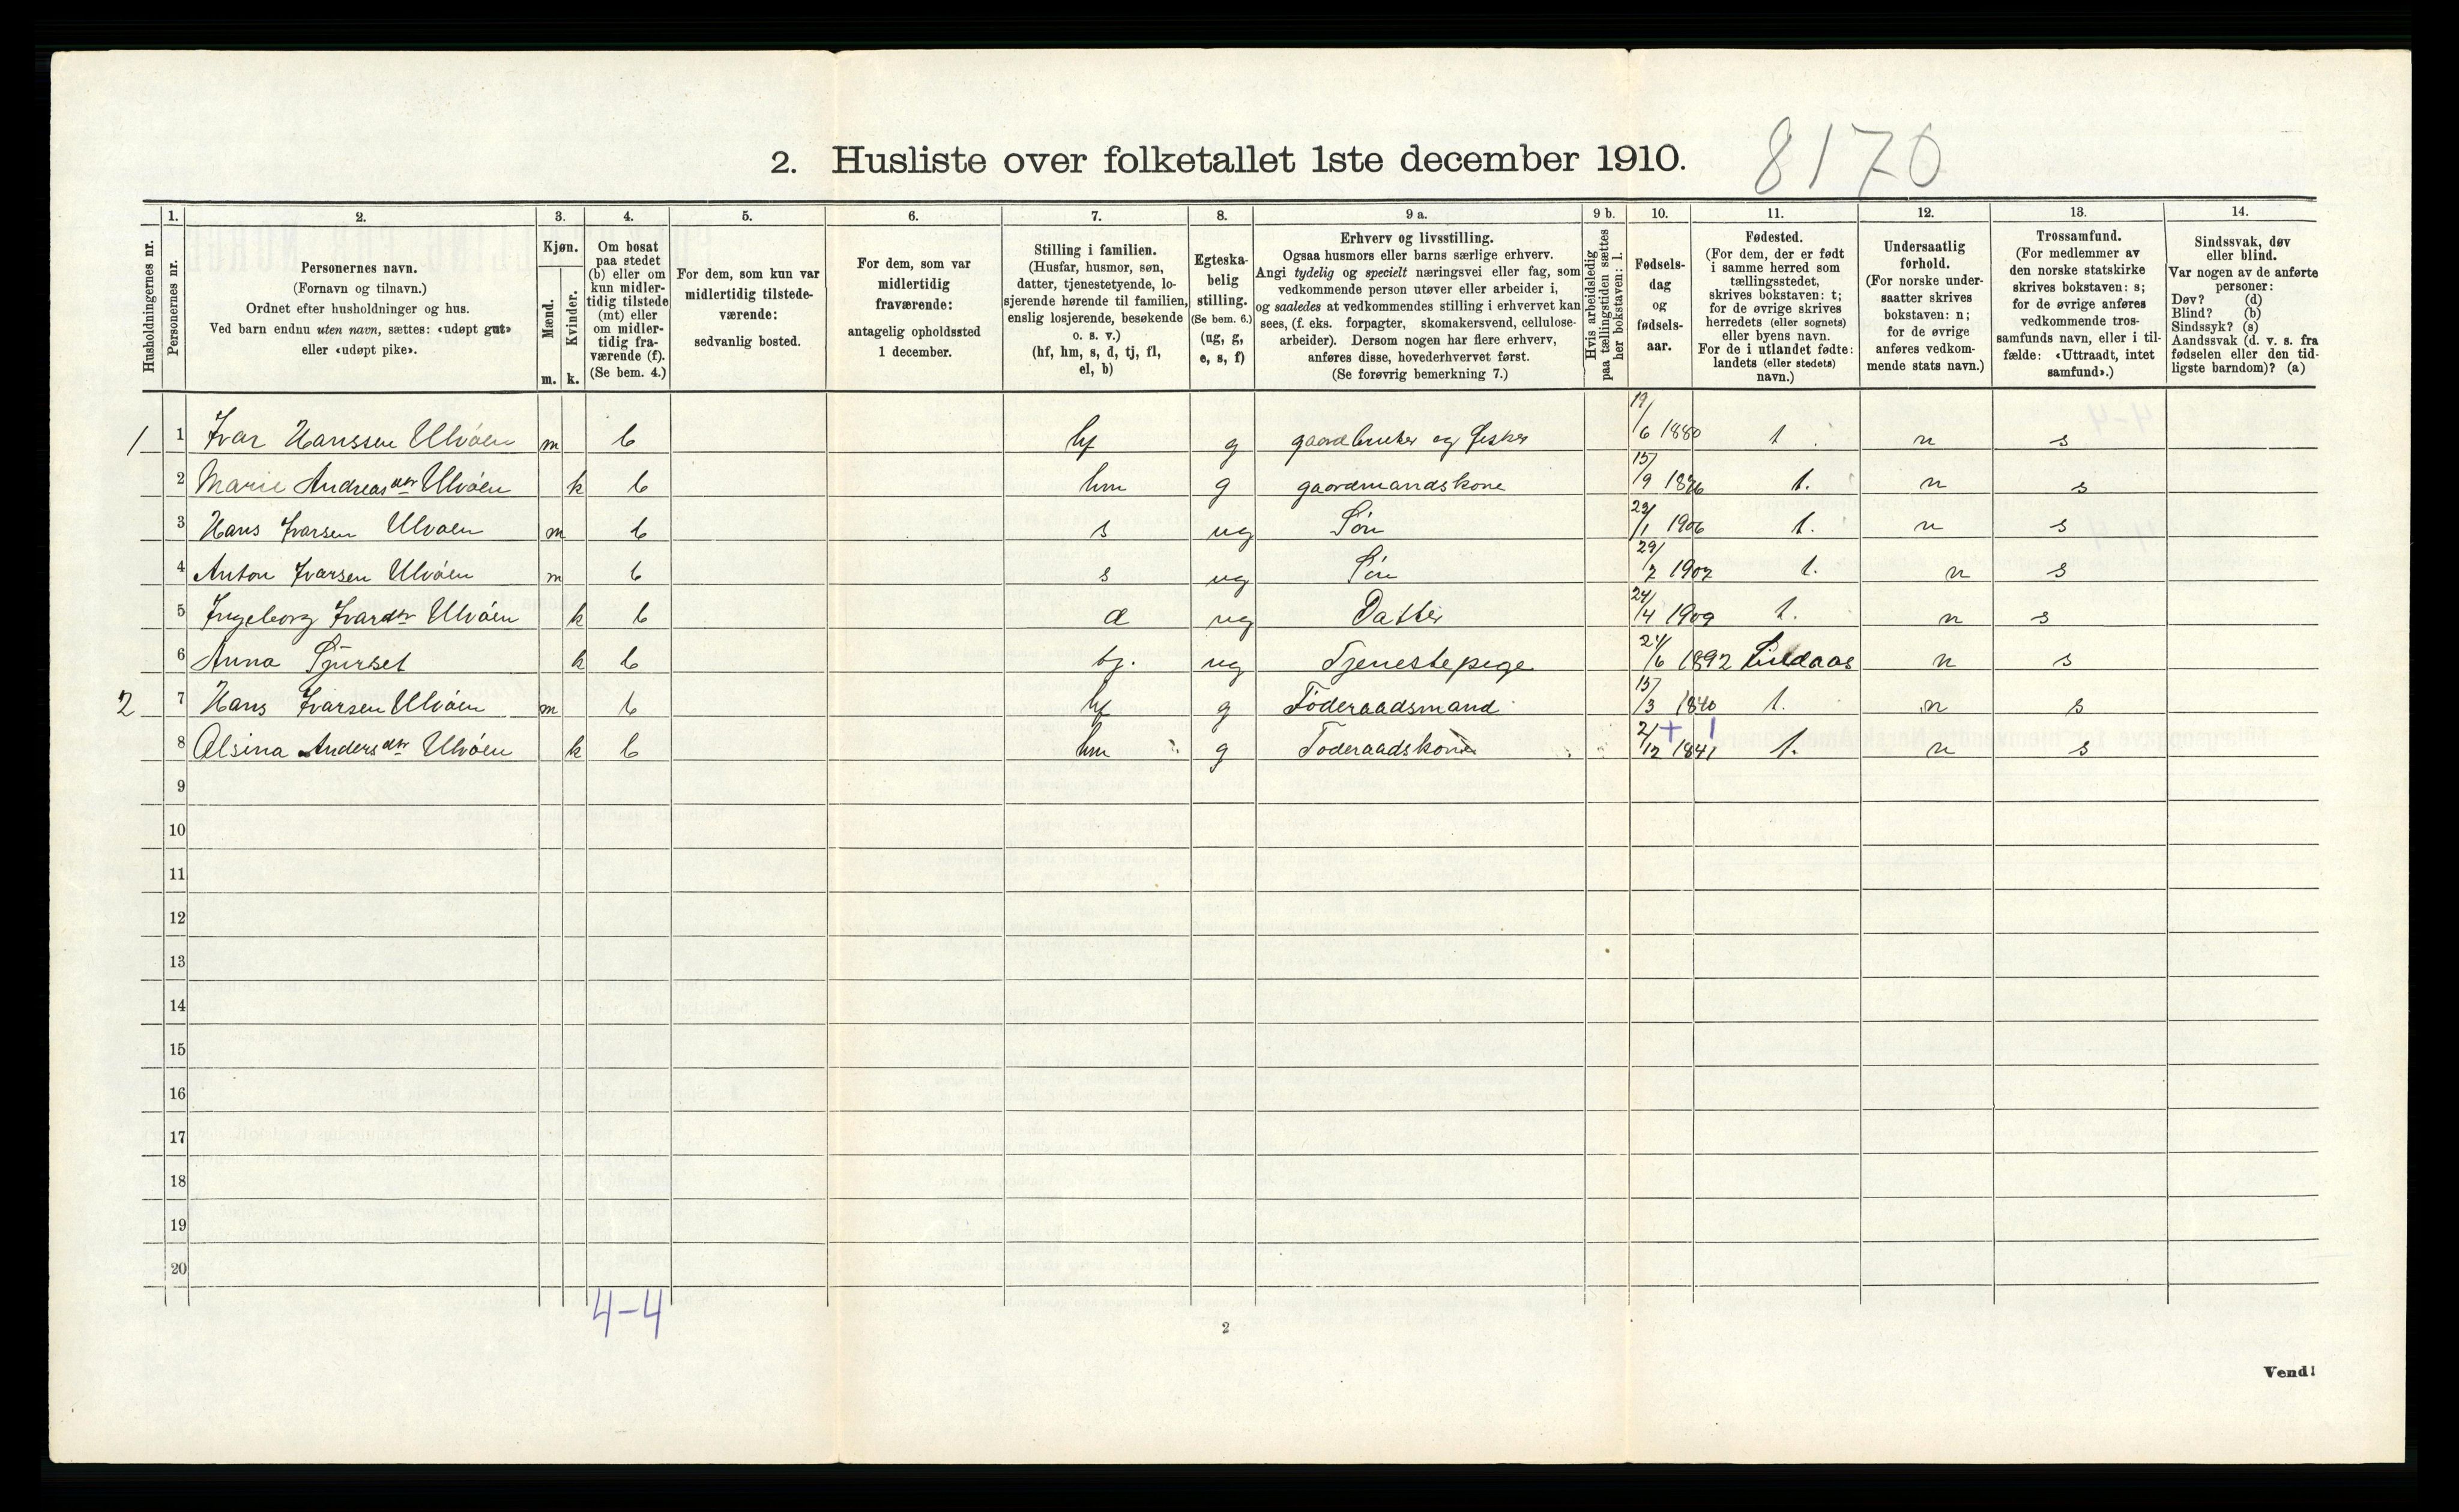 2. Husliste over folketallet 1ste december 1910. 8170
Husholdningernes nr.
1. Personernes nr.
2. Personernes navn. (Fornavn og tilnavn.) Ordnet efter husholdninger og hus. Ved barn endnu uten navn, sættes: «udøpt gut» eller «udøpt pike».
3. Kjøn. Mænd. m. Kvinder. k.
4. Om bosat paa stedet (b) eller om kun midlertidig tilstede (mt) eller om midlertidig fraværende (f). (Se bem. 4.)
5. For dem, som kun var midlertidig tilstedeværende: sedvanlig bosted.
6. For dem, som var midlertidig fraværende: antagelig opholdssted 1 december.
7. Stilling i familien. (Husfar, husmor, søn, datter, tjenestetyende, losjerende hørende til familien, enslig losjerende, besøkende o. s. v.) (hf, hm, s, d, tj, fl, el, b)
8. Egteskabelig stilling. (Se bem. 6.) (ug, g, e, s, f)
9 a. Erhverv og livsstilling. Ogsaa husmors eller barns særlige erhverv. Angi tydelig og specielt næringsvei eller fag, som vedkommende person utøver eller arbeider i, og saaledes at vedkommendes stilling i erhvervet kan sees, (f. eks. forpagter, skomakersvend, cellulosearbeider). Dersom nogen har flere erhverv, anføres disse, hovederhvervet først. (Se forøvrig bemerkning 7.)
9 b. Hvis arbeidsledig paa tællingstiden sættes her bokstaven: l.
10. Fødselsdag og fødselsaar.
11. Fødested. (For dem, der er født i samme herred som tællingsstedet, skrives bokstaven: t; for de øvrige skrives herredets (eller sognets) eller byens navn. For de i utlandet fødte: landets (eller stedets) navn.)
12. Undersaatlig forhold. (For norske undersaatter skrives bokstaven: n; for de øvrige anføres vedkommende stats navn.)
13. Trossamfund. (For medlemmer av den norske statskirke skrives bokstaven: s; for de øvrige anføres vedkommende trossamfunds navn, eller i tilfælde: «Uttraadt, intet samfund».)
14. Sindssvak, døv eller blind. Var nogen av de anførte personer: Døv? (d) Blind? (b) Sindssyk? (s) Aandssvak (d. v. s. fra fødselen eller den tidligste barndom)? (a)
1 1 Ivar Hanssen Ulvöen m b hf g gaardbruker og fisker 19/6 1880 t n s
2 Marie Andreasdtr Ulvöen k b hm g gaardmandskone 15/9 n s t.
3 Hans Ivarsen Ulvöen m b s ug Sön 1906 t. n s
4 Anton Ivarsen Ulvöen m b s ug Sön 29/7 1907 t. n s
5 Ingeborg Ivarsdtr Ulvöen k b d ug Datter 24/4 1909 t. n s
6 Anna k b tj. ug Tjenestepige 1892 Lindaas n s
2 7 Hans Ivarsen Ulvöen m b hf g Föderaadsmand 15/3 1840 t. n s
8 Alsina Andersdtr Ulvöen k b hm g Föderaadskone 2/12 1841 t. n s
9
10
11
12
13
14
15
16
17
18
19
20
4-4
2
Vend!